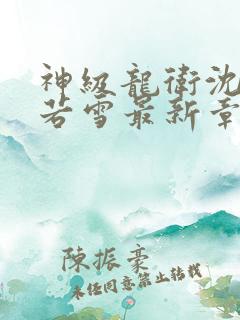 神級龍衛沈
若雪最新章
陳振豪
未经同意禁止转载